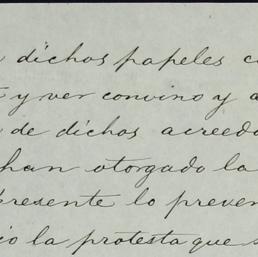 dichos papeles c
y ver convino y a
de dichos acreedo
han otorgado la
presente lo preven
io la protesta que s